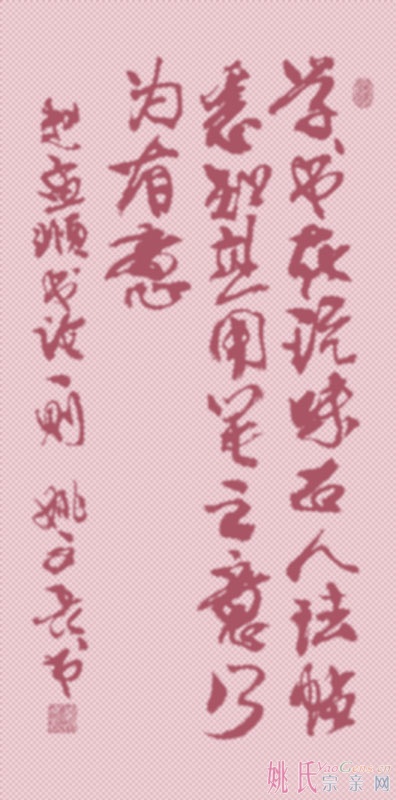 学书在玩味古人法帖
悉知其用笔之意乃
为有意
赵孟頫书论一则 姚文书
姚氏宗亲网